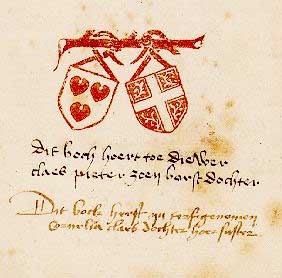 dit boch hoert toe diewer
claes pieter zoen borst dochter
Dit bock heeft in genomen
Cornelia claes dochter hoer suster